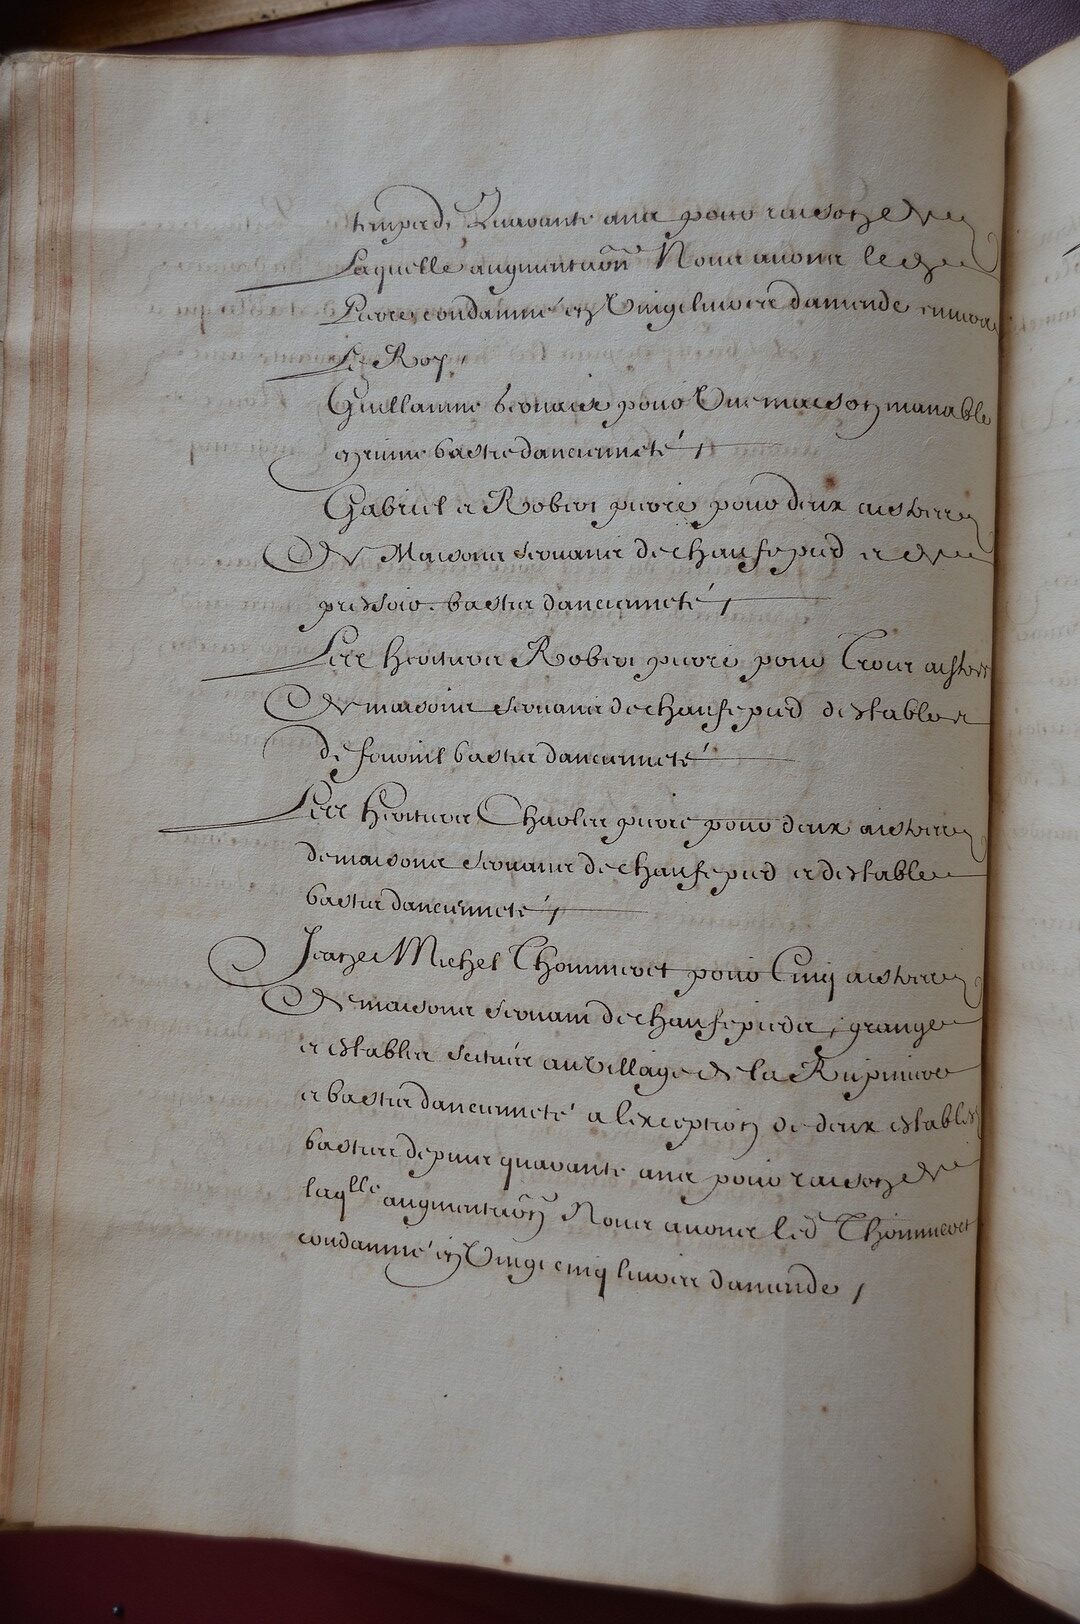 temps de Quarante ans pour raison de
Laquelle augmentaon Nous auons led
Pierre condamné en Vingt liures damende enuers
Le Roy,
Guillaume pour Vne maison manable
en ruine bastie dancienneté /
Gabriel et Robert pierre pour deux aistres
De Maisons seruans de chaufepied et de
pressoir bastis dancienneté /
Les heritiers Robert pierre pour Trois aistres
De maisons seruans de chaufepied destable et
de fournil bastis dancienneté
Les heritiers Charles pierre pour deux aistres
de maisons seruans de chaufepied et destable
bastis dancienneté /
Jean et Michel Thommeret pour Cinq aistres
De maisons seruans de chaufepieds, grange
et estables scitués au Village de la
et bastis dancienneté a lexception de deux estables
basties depuis quarante ans pour raison de
laqlle augmentaon Nous auons led Thommeret
condamné en Vingt cinq liures damende /